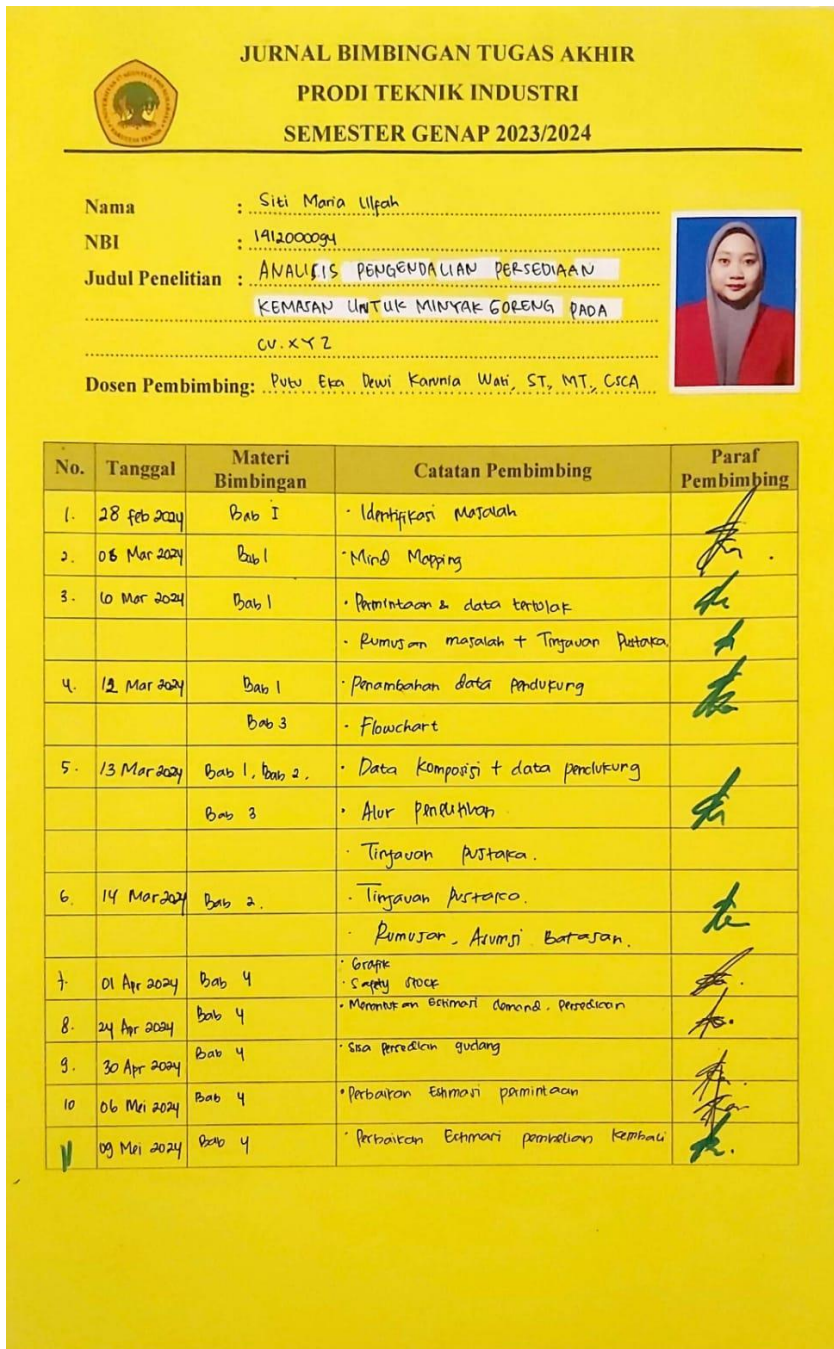 JURNAL BIMBINGAN TUGAS AKHIR
PRODI TEKNIK INDUSTRI
SEMESTER GENAP 2023/2024
Nama : Siti Maria Ulfah
NBI : 1412000094
Judul Penelitian : ANALISIS PENGENDALIAN PERSEDIAAN
KEMASAN UNTUK MINYAK GORENG PADA
CV. XYZ
Dosen Pembimbing: Putu Eka Dewi Karunia Wati, ST., MT., CSCA
No. Tanggal Materi Bimbingan Catatan Pembimbing Paraf Pembimbing
1. 28 Feb 2024 Bab I · Identifikasi Masalah
2. 08 Mar 2024 Bab 1 · Mind Mapping
3. 10 Mar 2024 Bab 1 · Permintaan & data tertolak
· Rumusan masalah + Tinjauan Pustaka
4. 12 Mar 2024 Bab 1 · Penambahan data pendukung
Bab 3 · Flowchart
5. 13 Mar 2024 Bab 1, Bab 2. · Data Komposisi + data pendukung
Bab 3 · Alur Penelitian
· Tinjauan Pustaka.
6. 14 Mar 2024 Bab 2. · Tinjauan Pustaka.
· Rumusan, Asumsi Batasan.
7. 01 Apr 2024 Bab 4 · Grafik
· Safety Stock
8. 24 Apr 2024 Bab 4 · Menentukan Estimasi demand, Persediaan
9. 30 Apr 2024 Bab 4 · Sisa Persediaan gudang
10 06 Mei 2024 Bab 4 · Perbaikan Estimasi permintaan
11 09 Mei 2024 Bab 4 · Perbaikan Estimasi pembelian kembali